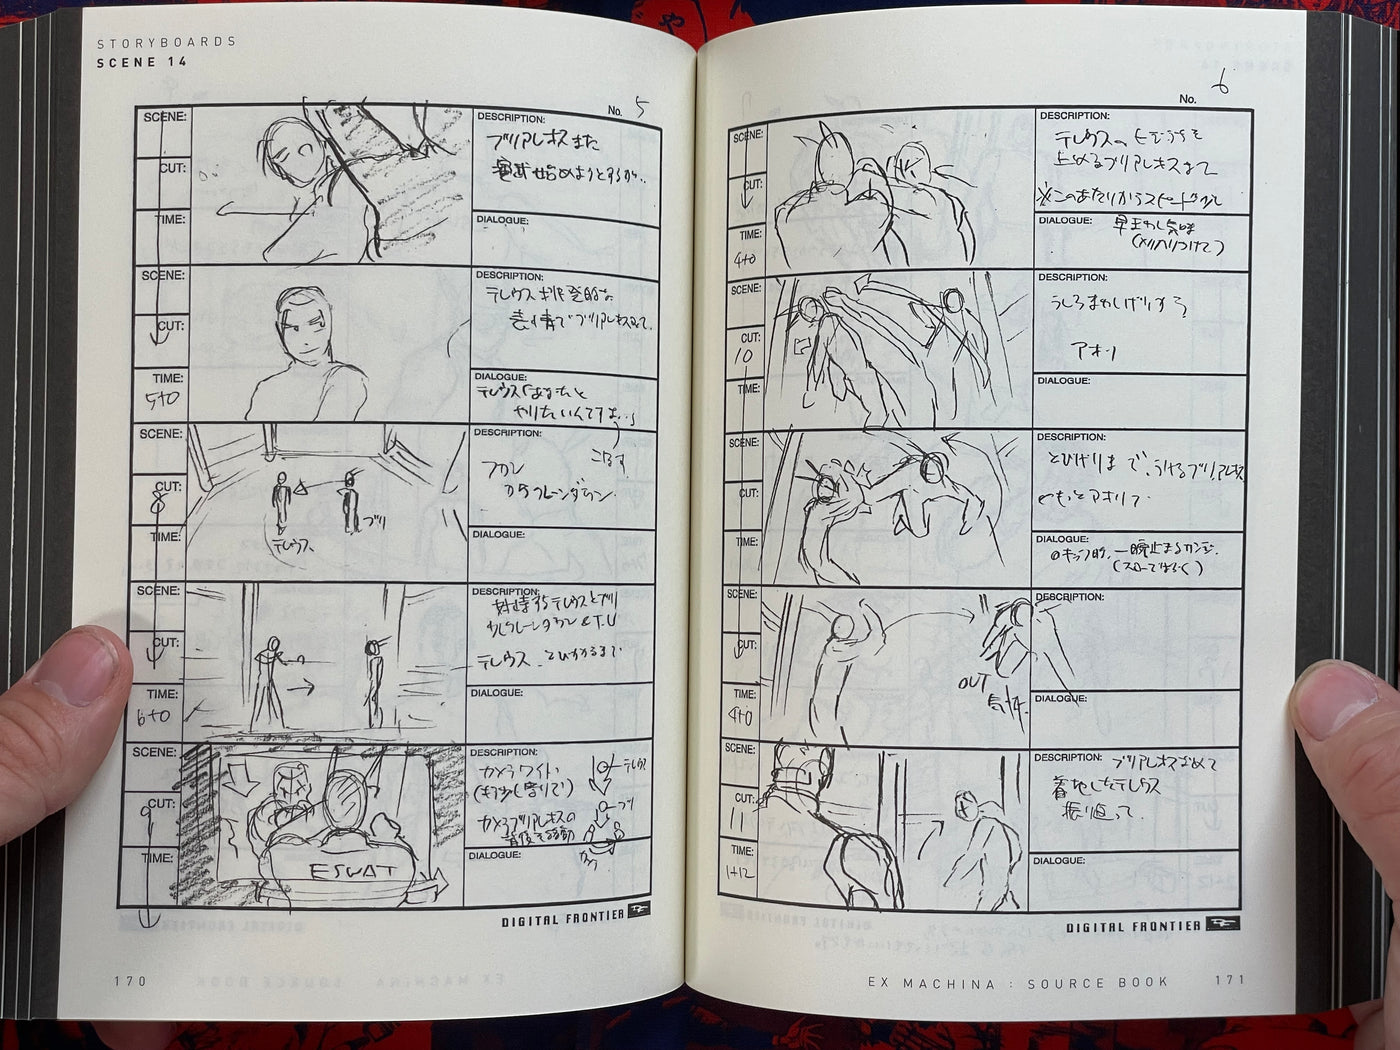 STORYBOARDS
SCENE 14
No. 5
SCENE:
CUT:
TIME:
DESCRIPTION:
ブリアレオスまた
DIALOGUE:
SCENE:
CUT:
TIME:
5+0
DESCRIPTION:
テレウス挑発的な
表情でブリアレオスみて、
DIALOGUE:
テレウス「あなたと
やりたいんですよ…」
SCENE:
CUT:
8
TIME:
テレウス
ブリ
DESCRIPTION:
フカン
からクレーンダウン
DIALOGUE:
SCENE:
CUT:
TIME:
6+0
DESCRIPTION:
対峙するテレウスとブリ
クレーンダウン & T.U
テレウス
とびかかるまで
DIALOGUE:
SCENE:
CUT:
9
TIME:
ESWAT
DESCRIPTION:
カメラワイド
(もう少し寄りで)
カメラブリアレオスの
背後を移動
テレウス
ブリ
DIALOGUE:
DIGITAL FRONTIER
170
No. 6
SCENE:
CUT:
TIME:
4+0
DESCRIPTION:
上めるブリアレオスまで
※このあたりからスピード
DIALOGUE:
早まわし気味
(メリハリつけて)
SCENE:
CUT:
10
TIME:
DESCRIPTION:
うしろまわしげりする
アオリ
DIALOGUE:
SCENE:
CUT:
TIME:
DESCRIPTION:
とびげりまで、うけるブリアレオス
もっとアオリで
DIALOGUE:
一瞬止まるカンジ
(スローではなく)
SCENE:
CUT:
TIME:
4+0
OUT
DESCRIPTION:
DIALOGUE:
SCENE:
CUT:
11
TIME:
1+12
DESCRIPTION:
ブリアレオスなめて
着地したテレウス
振り返って
DIALOGUE:
DIGITAL FRONTIER
EX MACHINA : SOURCE BOOK
171